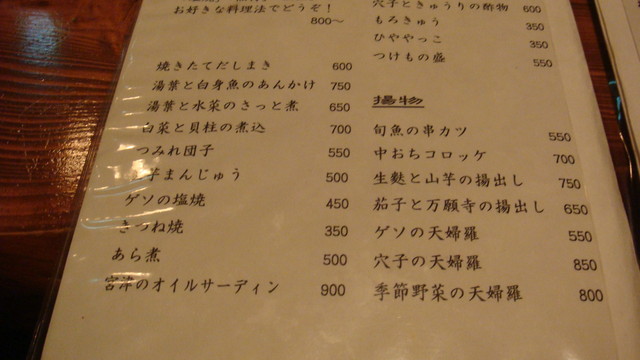 お好きな料理法でどうぞ!
800〜
焼きたてだしまき 600
湯葉と白身魚のあんかけ 750
湯葉と水菜のさっと煮 650
白菜と貝柱の煮込 700
つみれ団子 550
芋まんじゅう 500
ゲソの塩焼 450
きつね焼 350
あら煮 500
宮津のオイルサーディン 900
穴子ときゅうりの酢物 600
もろきゅう 350
ひややっこ 350
つけもの盛 550
揚物
旬魚の串カツ 550
中おちコロッケ 700
生麩と山芋の揚出し 750
茄子と万願寺の揚出し 650
ゲソの天婦羅 550
穴子の天婦羅 850
季節野菜の天婦羅 800